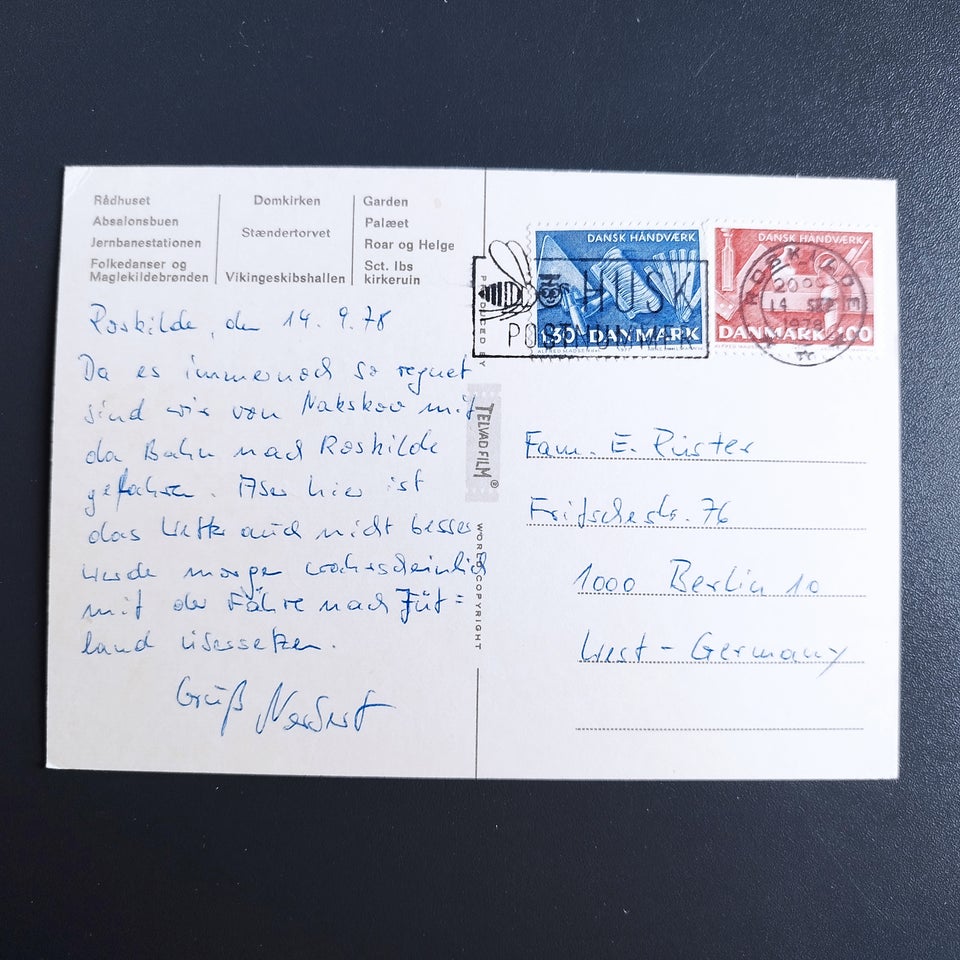 Rådhuset
Absalonsbuen
Jernbanestationen
Folkedanser og
Maglekildebrønden
Domkirken
Stændertorvet
Vikingeskibshallen
Garden
Palæet
Roar og Helge
Sct. Ibs
kirkeruin
Roskilde, den 14. 9. 78
Da es immernoch so regnet
sind wir von Nakskov mit
der Bahn nach Roskilde
gefahren. Aber hier ist
das Wetter auch nicht besser
werde morgen wahrscheinlich
mit der Fähre nach Jüt=
land übersetzen.
Gruß Norbert
PRODUCED BY
TELVAD FILM®
WORLD COPYRIGHT
HUSK
POSTNUMMER
DANSK HÅNDVÆRK
DANMARK
DANSK HÅNDVÆRK
DANMARK
ROSKILDE
14 SEP
Fam. E. Püster
Fritschestr. 76
1000 Berlin 10
West-Germany